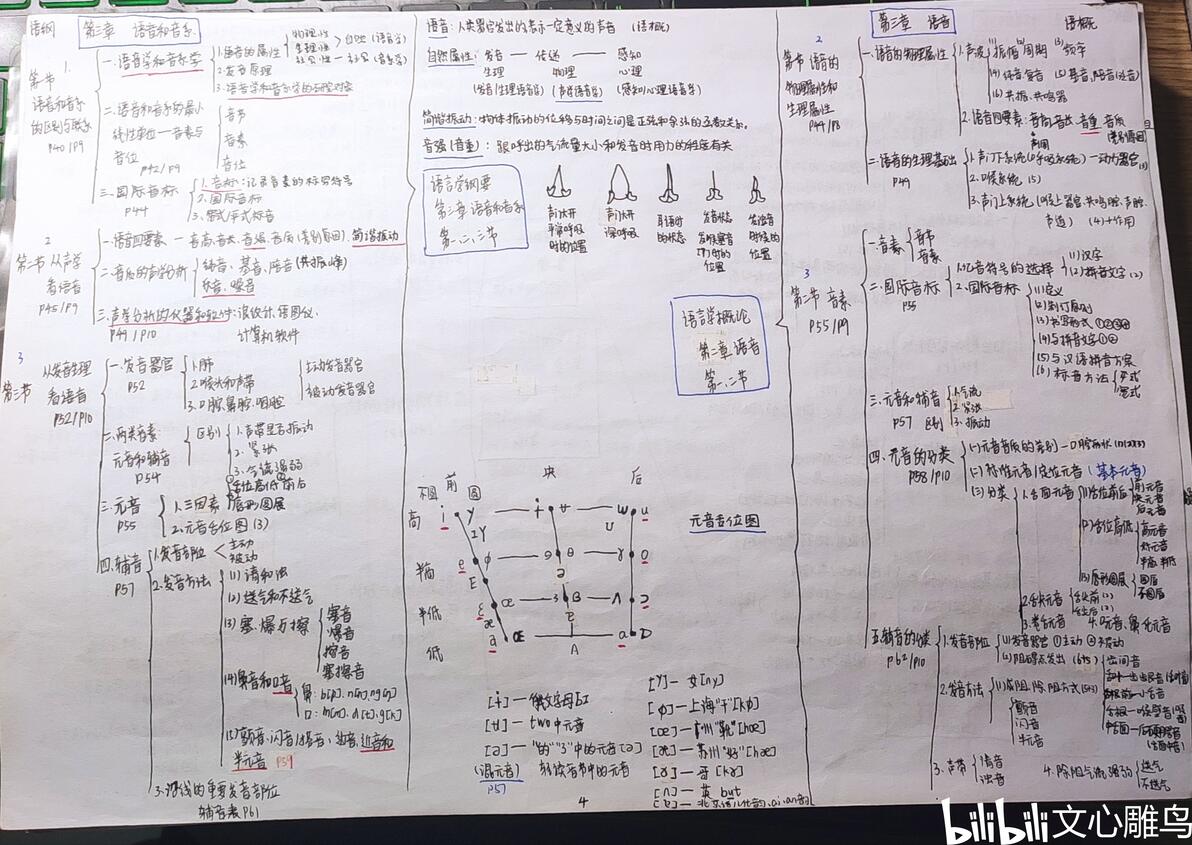 语纲 第三章 语音和音系
第一节 语音和音系的区别与联系 P40/P9
一.语音学和音系学
1.语音的属性
物理性
生理性
自然(语音学)
社会性—社会(音系学)
2.发音原理
3.语音学和音系学的研究对象
二.语音和音系的最小线性单位—音素与音位 P42/P9
音节
音素
音位
三.国际音标 P44
1.音标:记录音素的标写符号
2.国际音标
3.宽式/严式标音
第二节 从声学看语音 P45/P9
一.语音四要素—音高、音长、音强、音质(类别原因).简谐振动
二.音质的声学分析
纯音、基音、陪音(共振峰)
乐音、噪音
三.声学分析的仪器和软件:浪纹计、语图仪、计算机软件
P49/P10
第三节 从发音生理看语音 P52/P10
一.发音器官 P52
1.肺
2.喉头和声带
3.口腔、鼻腔、咽腔
主动发音器官
被动发音器官
二.两类音素 元音和辅音 P54
区别
1.声带是否振动
2.紧张
3.气流强弱
三.元音 P55
1.三因素
舌位高低前后
唇形圆展
2.元音舌位图(3)
四.辅音 P57
1.发音部位
主动
被动
2.发音方法
(1)清和浊
(2)送气和不送气
(3)塞、爆与擦
塞音
爆音
擦音
塞擦音
(4)鼻音和口音
(5)颤音、闪音、边音、近音和半元音 P59
3.汉语的重要发音部位
辅音表P61
语音:人类器官发出的表示一定意义的声音 (语概)
自然属性:发音—传送—感知
生理 物理 心理
(发音/生理语音学) (声学语音学) (感知/心理语音学)
简谐振动:物体振动的位移与时间之间是正弦和余弦的函数关系。
音强(音重):跟呼出的气流量大小和发音时用力的程度有关
语言学纲要
第三章 语音和音系
第一、二、三节
声门大开 平常呼吸时的位置
声门大开 深呼吸
耳语时的状态
发音状态 发喉塞音[ʔ]时的位置
发浊音时候的位置
语言学概论
第二章 语音
第一、二节
元音舌位图
前 央 后
不圆 圆
高 i y ɨ ʉ ɯ u
I Y U
半高 e ø ɘ ɵ ɤ o
E ə
半低 ɛ œ ɜ ɞ ʌ ɔ
æ ɐ
低 a Œ A ɑ ɒ
[ʉ]—two中元音
[ə]—“的”“了”中的元音[ə]
(混元音) 轻读音节中的元音
P57
[Y]—女[ny]
[œ]—广州“靴”[hœ]
[æ]—苏州“好”[hæ]
[ɤ]—哥[kɤ]
[ʌ]—英 but
4
第二章 语音 语概
第二节 语音的物理属性和生理属性 P44/P8
一.语音的物理属性
1.声波
(1)振幅 (2)周期 (3)频率
(4)纯音复音 (5)基音、陪音(泛音)
(6)共振、共鸣器
2.语音四要素:音高、音长、音重、音质
二.语音的生理基础 P49
1.声门下系统(呼吸系统)—动力器官
2.喉系统
3.声门上系统(喉上器官、共鸣腔、声腔、声道)
第三节 音素 P55/P9
一.音素
音节
音素
二.国际音标 P55
1.记音符号的选择
(1)汉字
(2)拼音文字(2)
2.国际音标
(1)定义
(2)制订原则
(3)书写形式
(4)与拼音文字
(5)与汉语拼音方案
(6)标音方法
严式
宽式
三.元音和辅音 P57 区别
1.气流
2.紧张
3.振动
四.元音的分类 P58/P10
(一)元音音质的类别—口腔形状(1)(2)(3)
(二)标准元音/定位元音(基本元音)
(三)分类
1.舌面元音
(1)舌位前后
前元音
央元音
后元音
(2)舌位高低
高元音
低元音
半高 半低
(3)唇形圆展
圆唇
不圆唇
2.舌尖元音
舌尖前(2)
舌尖后(2)
3.卷舌元音 4.口元音、鼻化元音
五.辅音的分类 P62/P10
1.发音部位
(1)发音器官 ①主动 ②被动
2.发音方法
颤音
闪音
半元音
3.声带
清音
浊音
4.除阻气流强弱
送气
不送气
bilibili 文心雕鸟